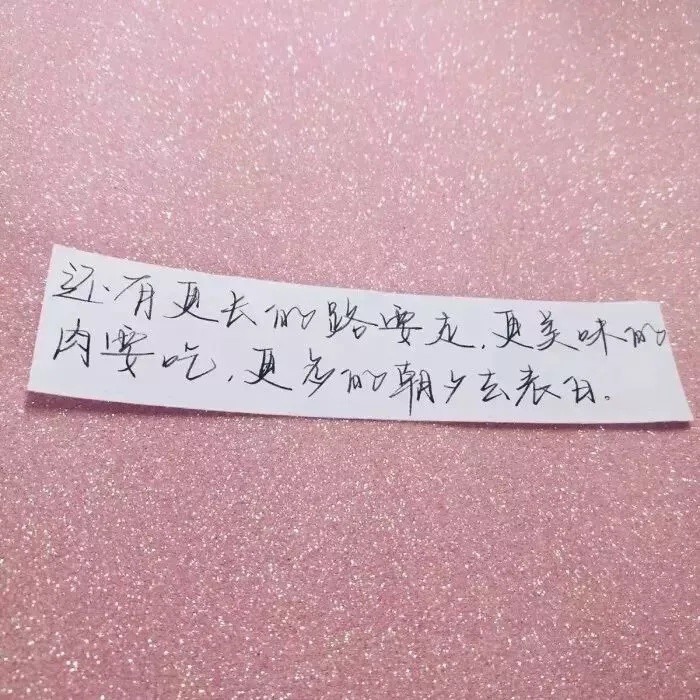 还有更长的路要走，更美味的
肉要吃，更多的朝夕去表白。